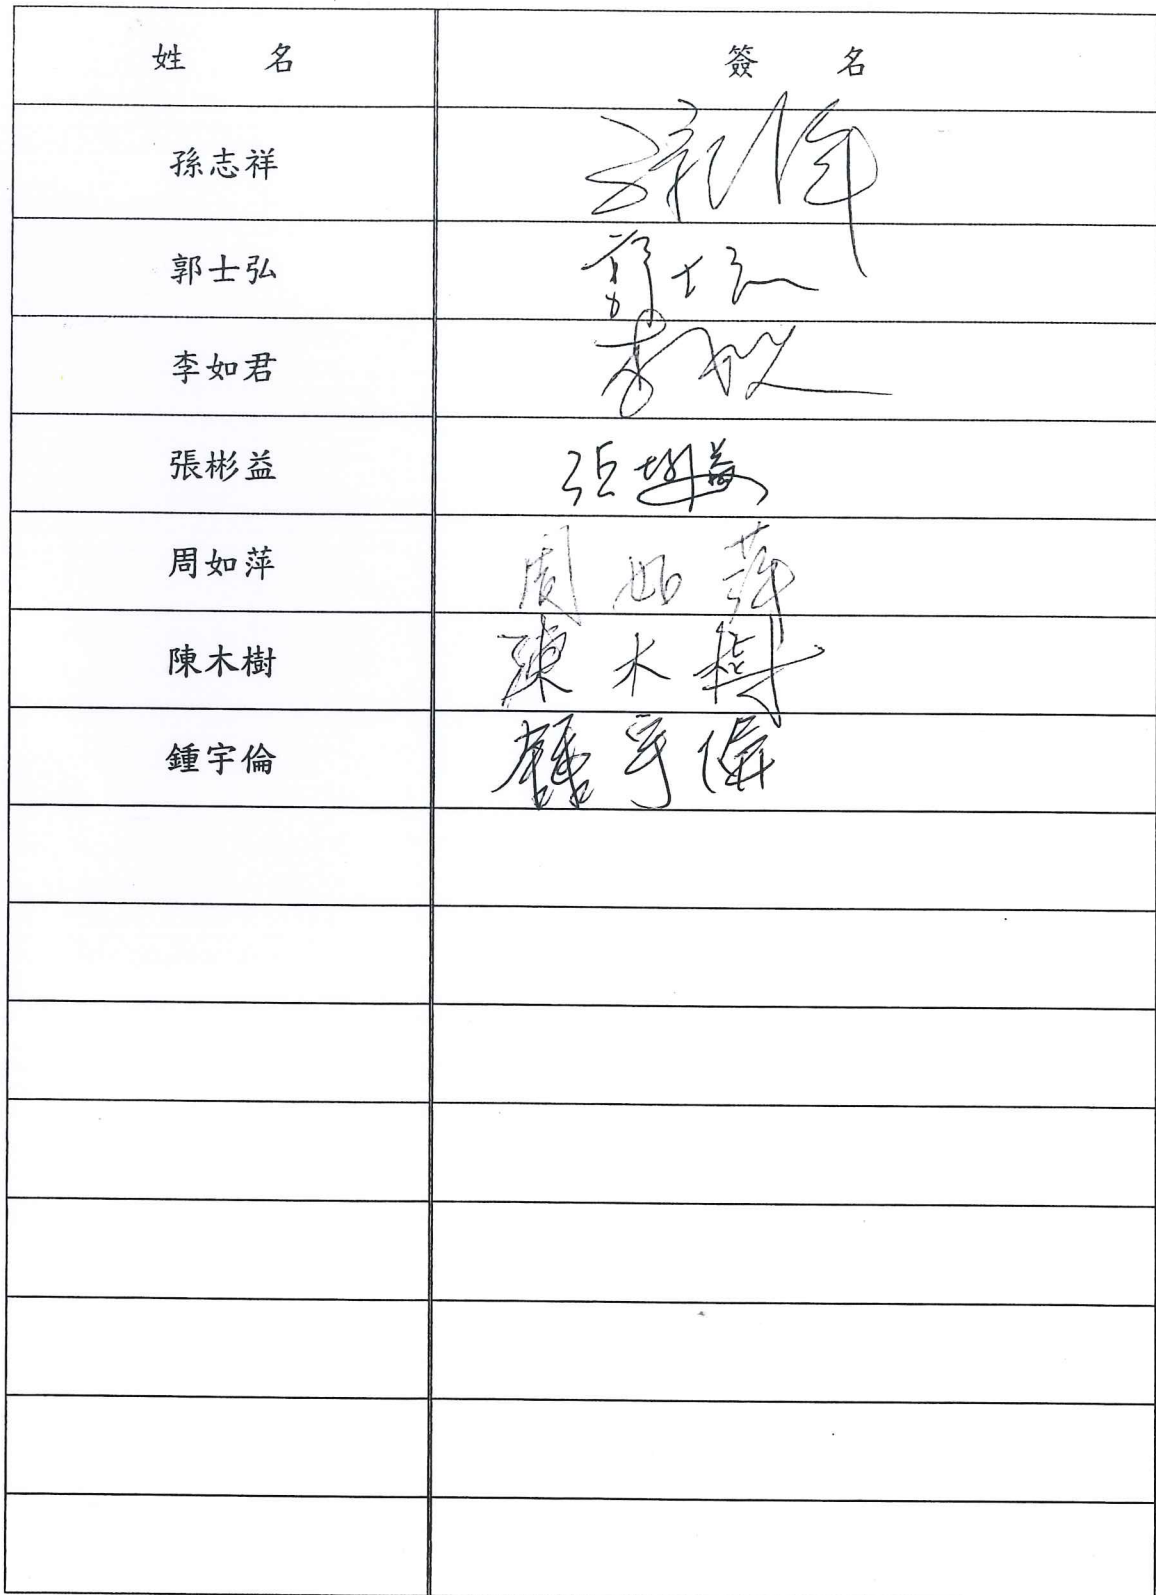 姓 名 簽 名
孫志祥
郭士弘 郭士弘
李如君 李如君
張彬益 張彬益
周如萍 周如萍
陳木樹 陳木樹
鍾宇倫 鍾宇倫